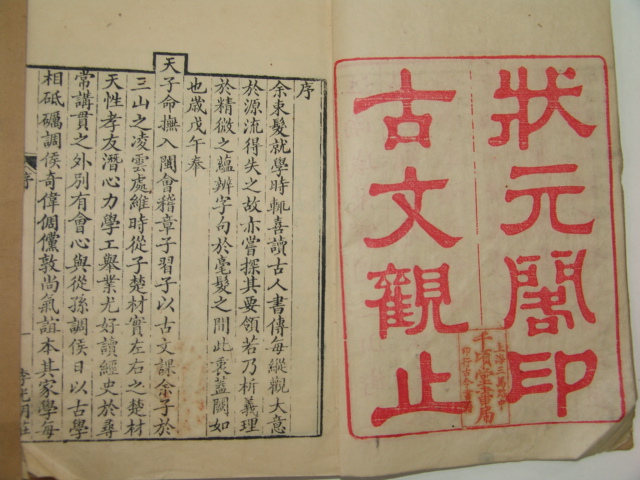 狀元閣印
古文觀止
千頃堂書局
序
余束髮就學時輒喜讀古人書傳每縱觀大意
於源流得失之故亦嘗探其要領若乃析義理
於精微之蘊辨字句於毫髮之間此衷蓋闕如
也歲戊午奉
天子命撫入閩會稽章子習子以古文課余子於
三山之凌雲處維時從子楚材實左右之楚材
天性孝友潛心力學工舉業尤好讀經史於尋
常講貫之外別有會心與從孫調侯日以古學
相砥礪調侯奇偉倜儻敦尚氣誼本其家學每
序